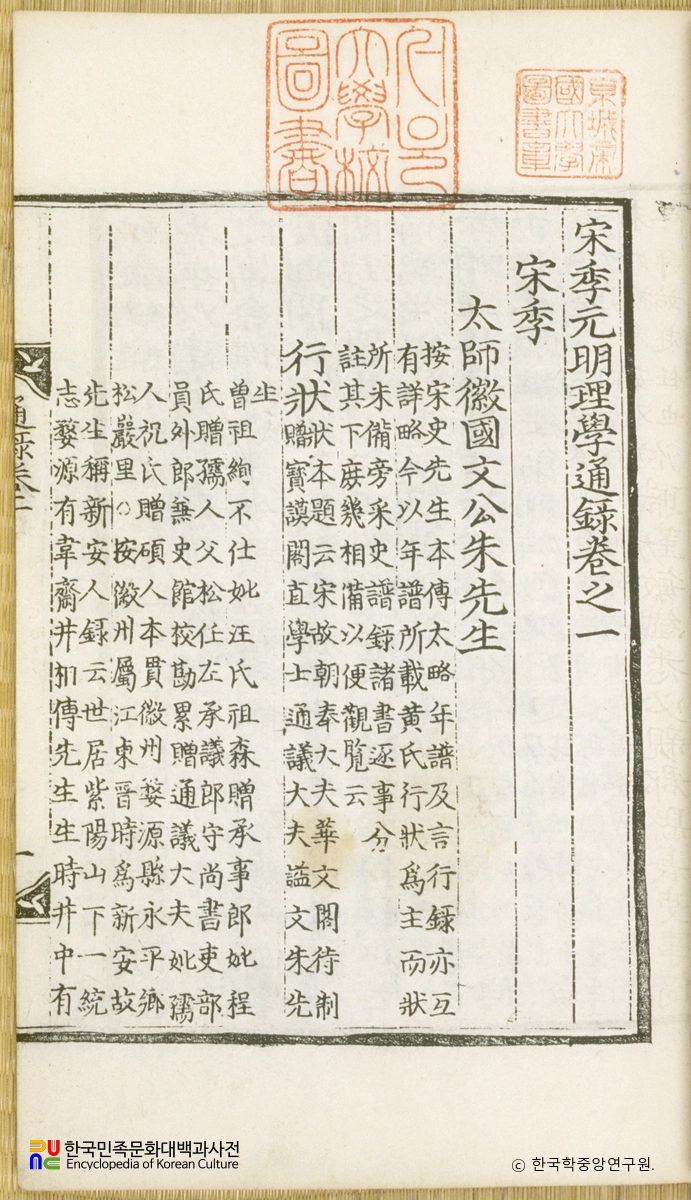 서울大學校圖書
京城帝國大學圖書章
宋季元明理學通録卷之一
宋季
太師徽國文公朱先生
按宋史先生本傳太略年譜及言行録亦互
有詳略今以年譜所載黄氏行狀爲主而狀
所未備旁采史譜録諸書逐事分
註其下庶幾相備以便觀覽云
行狀狀本題云宋故朝奉大夫華文閣待制
贈寳謨閣直學士通議大夫謚文朱先
生
曽祖絢不仕妣汪氏祖森贈承事郎妣程
氏贈孺人父松任左承議郎守尚書吏部
員外郎兼史館校勘累贈通議大夫妣孺
人祝氏贈碩人本貫徽州婺源縣永平鄉
松巖里○按徽州屬江東晉時爲新安故
先生稱新安人録云世居紫陽山下一統
志婺源有韋齋井相傳先生生時井中有
通録卷一
一
한국민족문화대백과사전
Encyclopedia of Korean Culture
© 한국학중앙연구원.